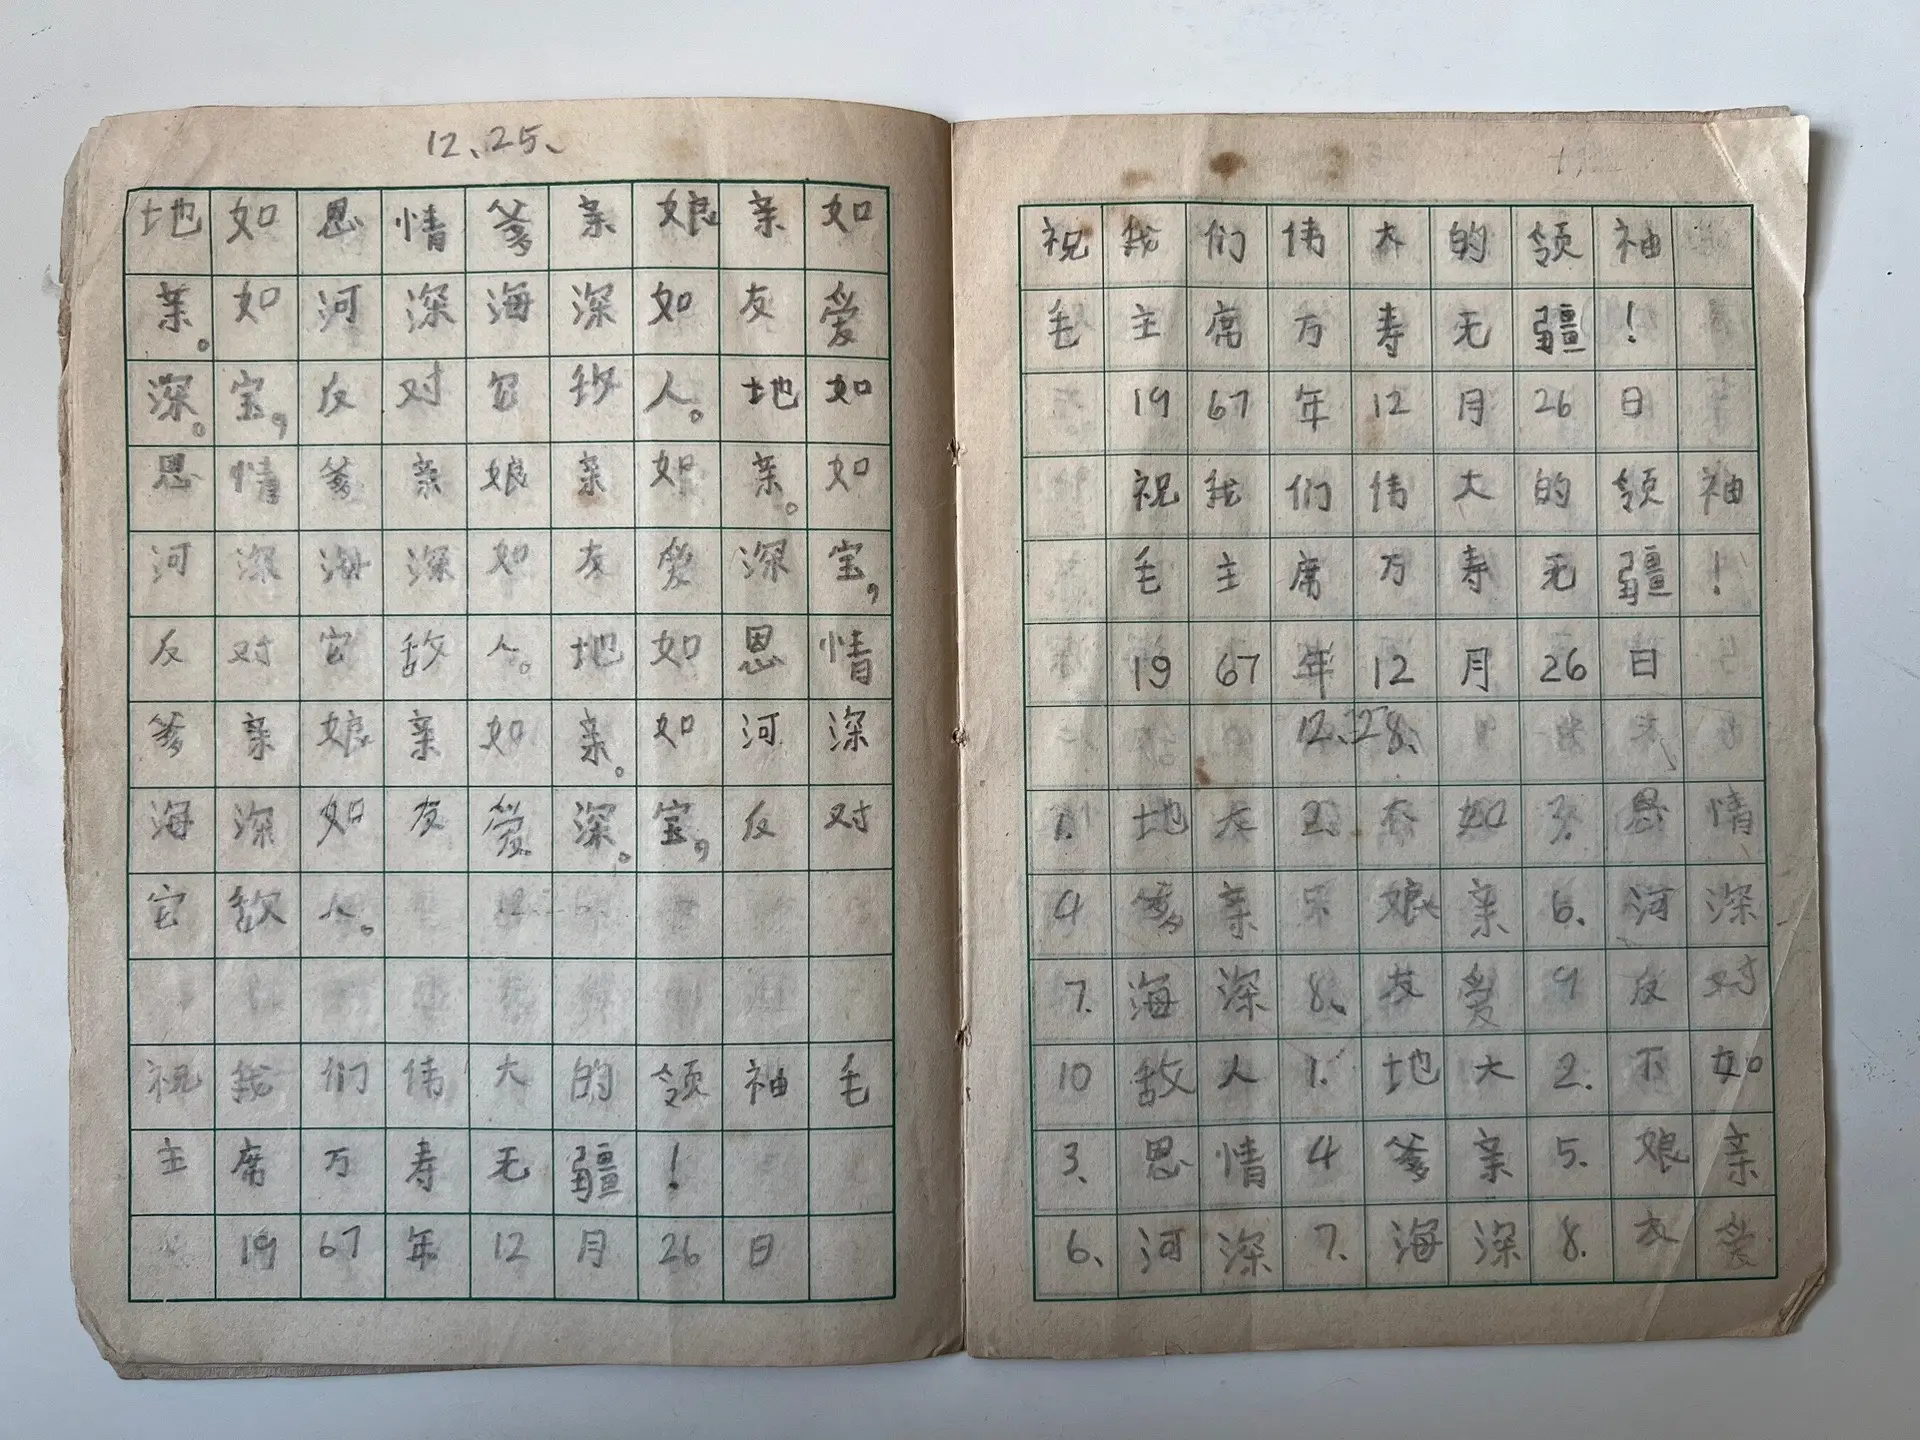 12、25、
地如恩情爹亲娘亲如
亲。如河深海深如友爱
深。宝，反对它敌人。地如
恩情爹亲娘亲如亲。如
河深海深如友爱深宝，
反对它敌人。地如恩情
爹亲娘亲如亲。如河深
海深如友爱深。宝，反对
它敌人。
12.26.
祝我们伟大的领袖毛
主席万寿无疆！
1967年12月26日
祝我们伟大的领袖
毛主席万寿无疆！
1967年12月26日
祝我们伟大的领袖
毛主席万寿无疆！
1967年12月26日
12、28、
1.地大2.不如3.恩情
4爹亲5娘亲6、河深
7.海深8、友爱9反对
10敌人1.地大2.不如
3、恩情4爹亲5.娘亲
6、河深7.海深8.友爱